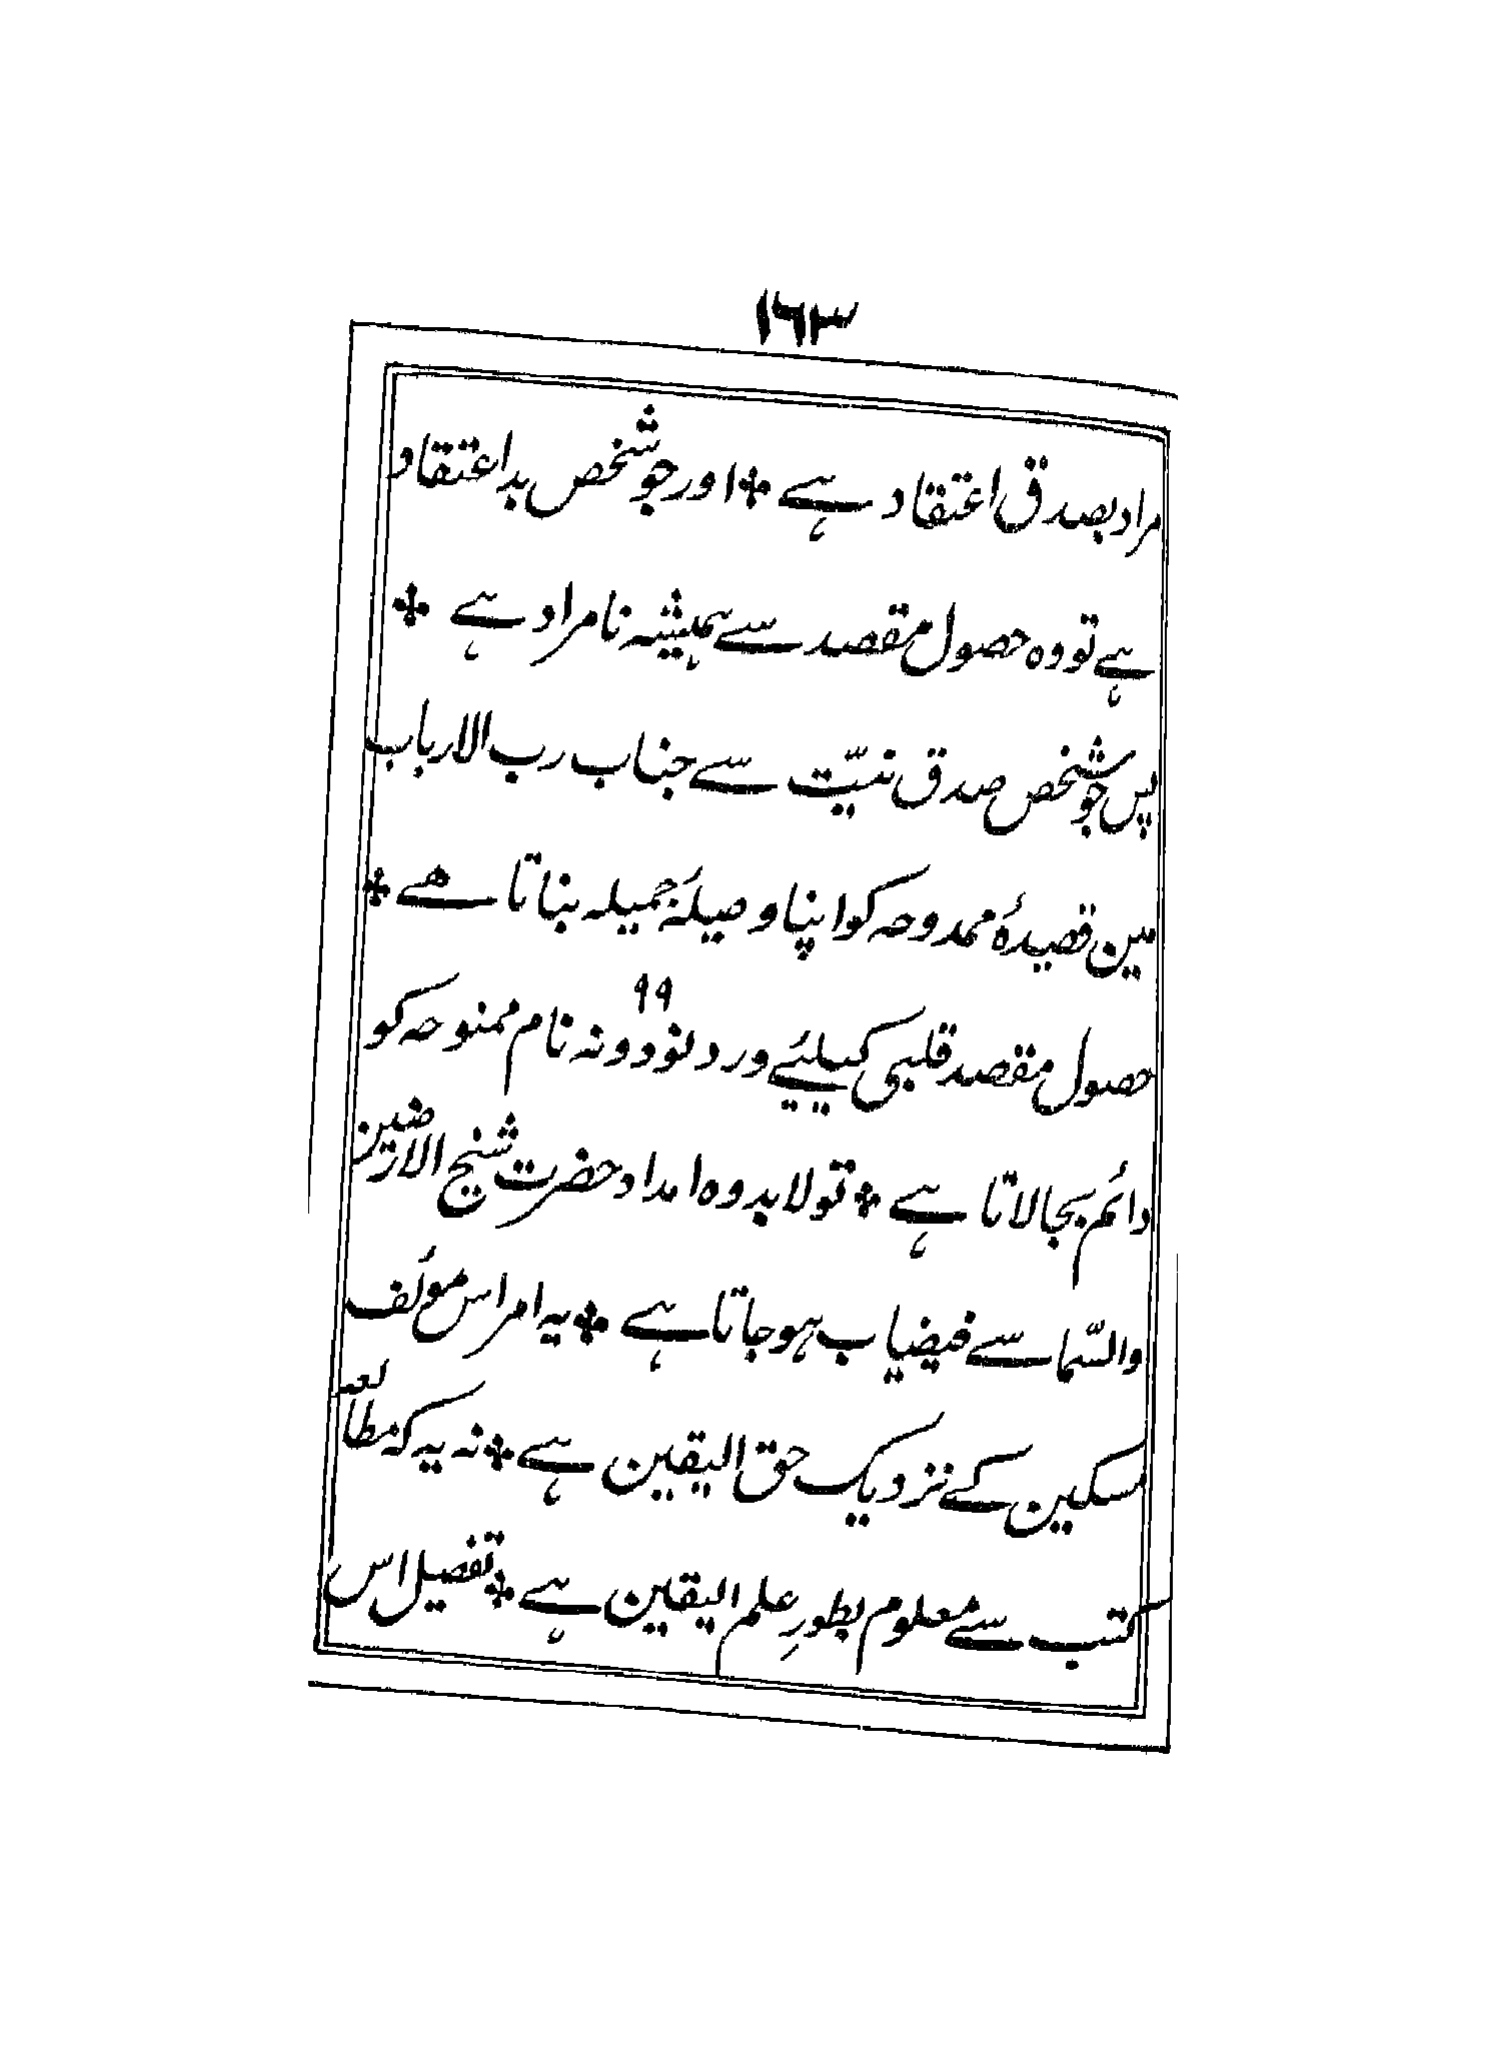 ۱۶۳
مراد بصدق اعتقاد ہے ❊ اور جو شخص بد اعتقاد
ہے تو وہ حصول مقصد سے ہمیشہ نامراد ہے ❊
پس جو شخص صدق نیّت سے جناب رب الارباب
مین قصیدۂ ممدوحہ کو اپنا وصیلۂ جمیلہ بناتا ھے ❊
حصول مقصد قلبی کیلیئے ورد نود و نہ ۹۹ نام ممنوحہ کو
دائم بجالاتا ہے ❊ تو لابد وہ امداد حضرت شیخ الارضین
والسّما سے فیضیاب ہو جاتا ہے ❊ یہ امر اس مؤلف
مسکین کے نزدیک حق الیقین ہے ❊ نہ یہ کہ مطالعہ
کتب سے معلوم بطورِ علم الیقین ہے ❊ تفصیل اس